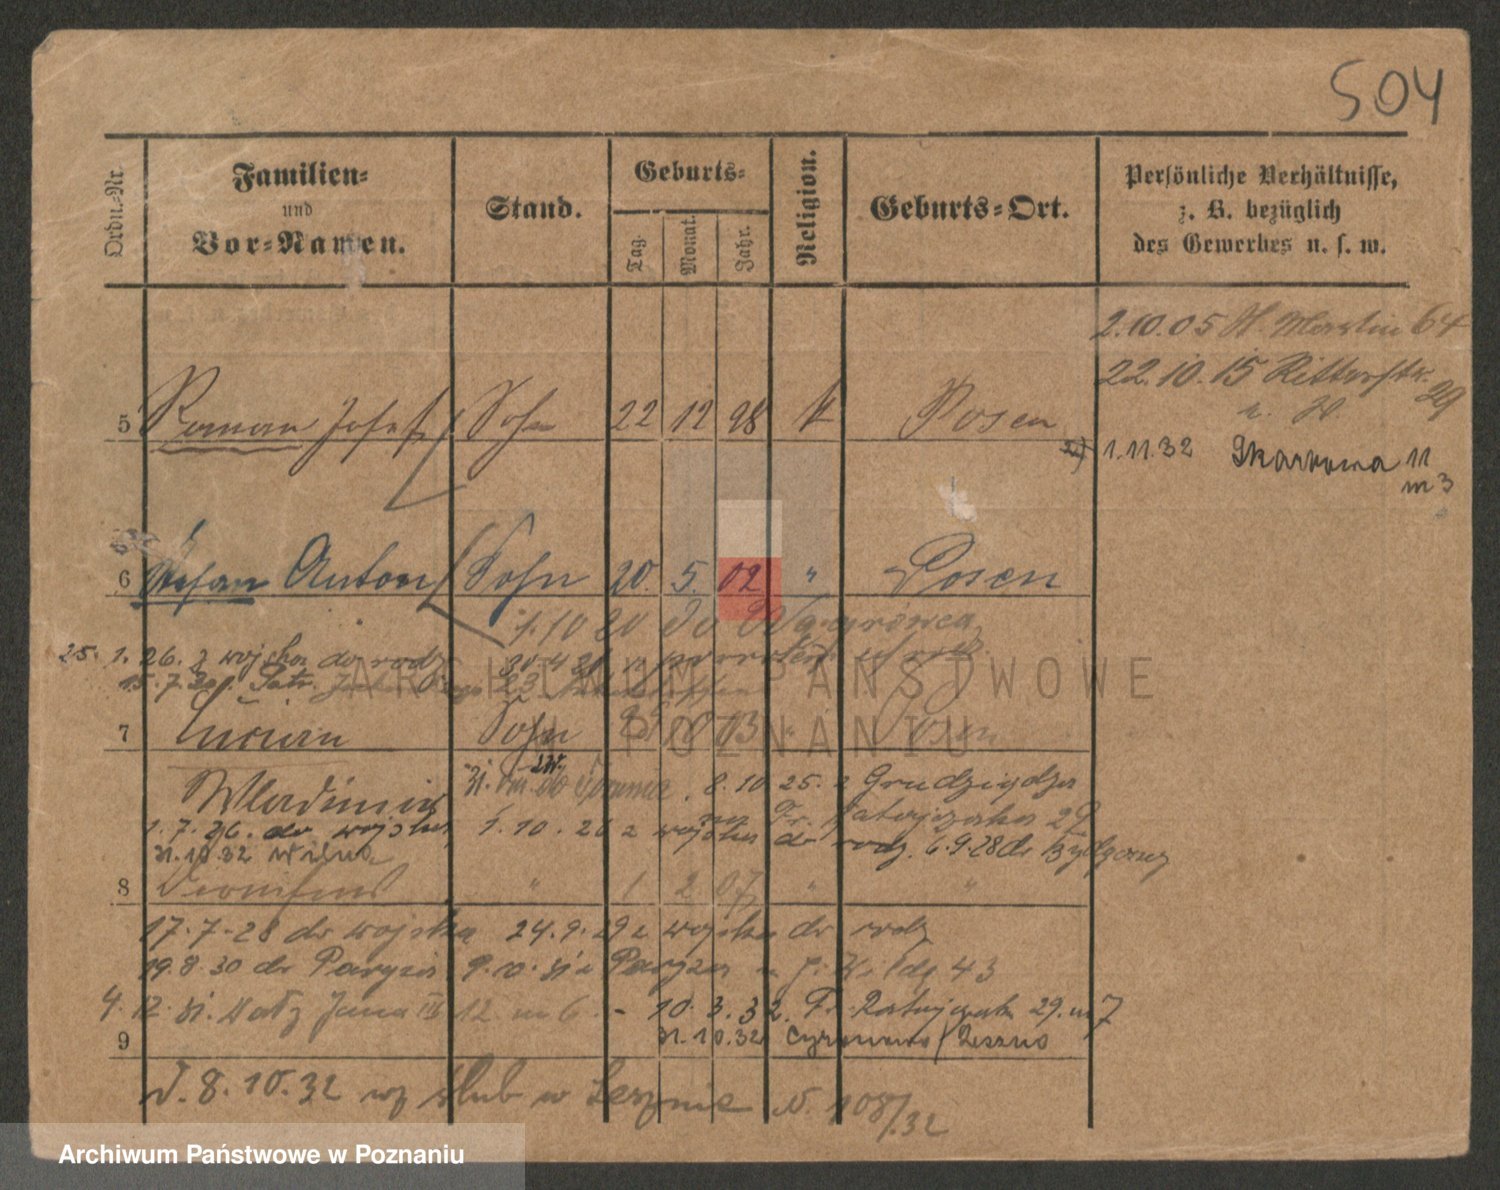 504
Ordn.-Nr.
Familien-
und
Vor-Namen.
Stand.
Geburts-
Tag.
Monat.
Jahr.
Religion.
Geburts-Ort.
Persönliche Verhältnisse,
z. B. bezüglich
des Gewerbes u. s. w.
2.10.05 St. Martin 64
22.10.15 Ritterstr. 29
5 Roman Josef Sohn 22 12 98 k Posen
1.11.32 Skarbowa 11
m 3
6 Stefan Anton Sohn 20. 5. 02 " Posen
1.10 20 do Wągrówca
25. 1. 26. z wojska do rodz.
15.7.
ARCHIWUM PAŃSTWOWE
W POZNANIU
7 Lucian Sohn 03 "
Wladimir 8.10 25. z Grudziądza
1.7.26. do wojska 1.10.26 z wojska do rodz. 6.9.28 do Bydgoszcz
Fr. Ratajczaka 29
31.10.32 Wilna
8 Dionisius " 1 2 07 " "
17.7.28 do wojska 24.9.29 z wojska do rodz
19.8.30 do Paryża 9.10.31 z Paryża 43
4.12.31. Jana III 12. m 6 - 10.3.32. Fr. Ratajczak 29. m 7
31.10.32 Leszno
9
8.10.32 wz ślub w Lesznie N. 108/32
Archiwum Państwowe w Poznaniu